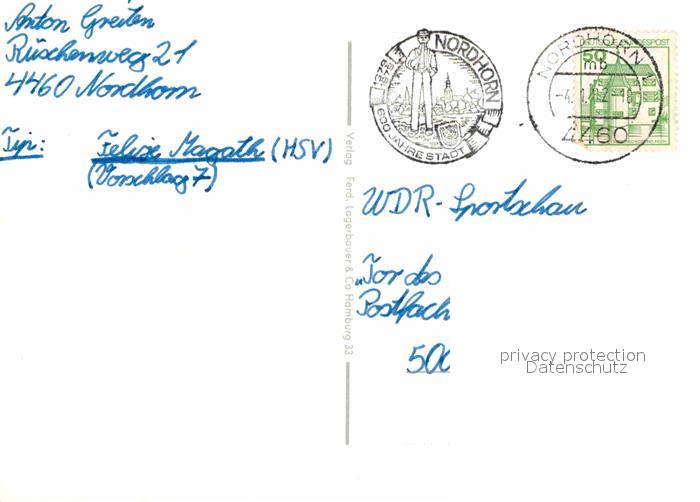 Anton Greiten
Rüschenweg 21
4460 Nordhorn
Tip: Felix Magath (HSV)
(Vorschlag 7)
Verlag Ferd. Lagerbauer & Co Hamburg 33
NORDHORN
1379
1979
600 JAHRE STADT
NORDHORN 1
mb
4460
50
DEUTSCHE BUNDESPOST
WDR-Sportschau
"Tor des
Postfach
500
privacy protection
Datenschutz